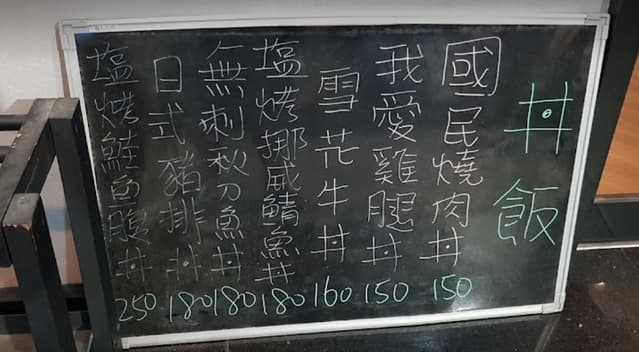 丼飯
國民燒肉丼 150
我愛雞腿丼 150
雪花牛丼 160
塩烤挪威鯖魚丼 180
無刺秋刀魚丼 180
日式豬排丼 180
塩烤鮭魚腹丼 250